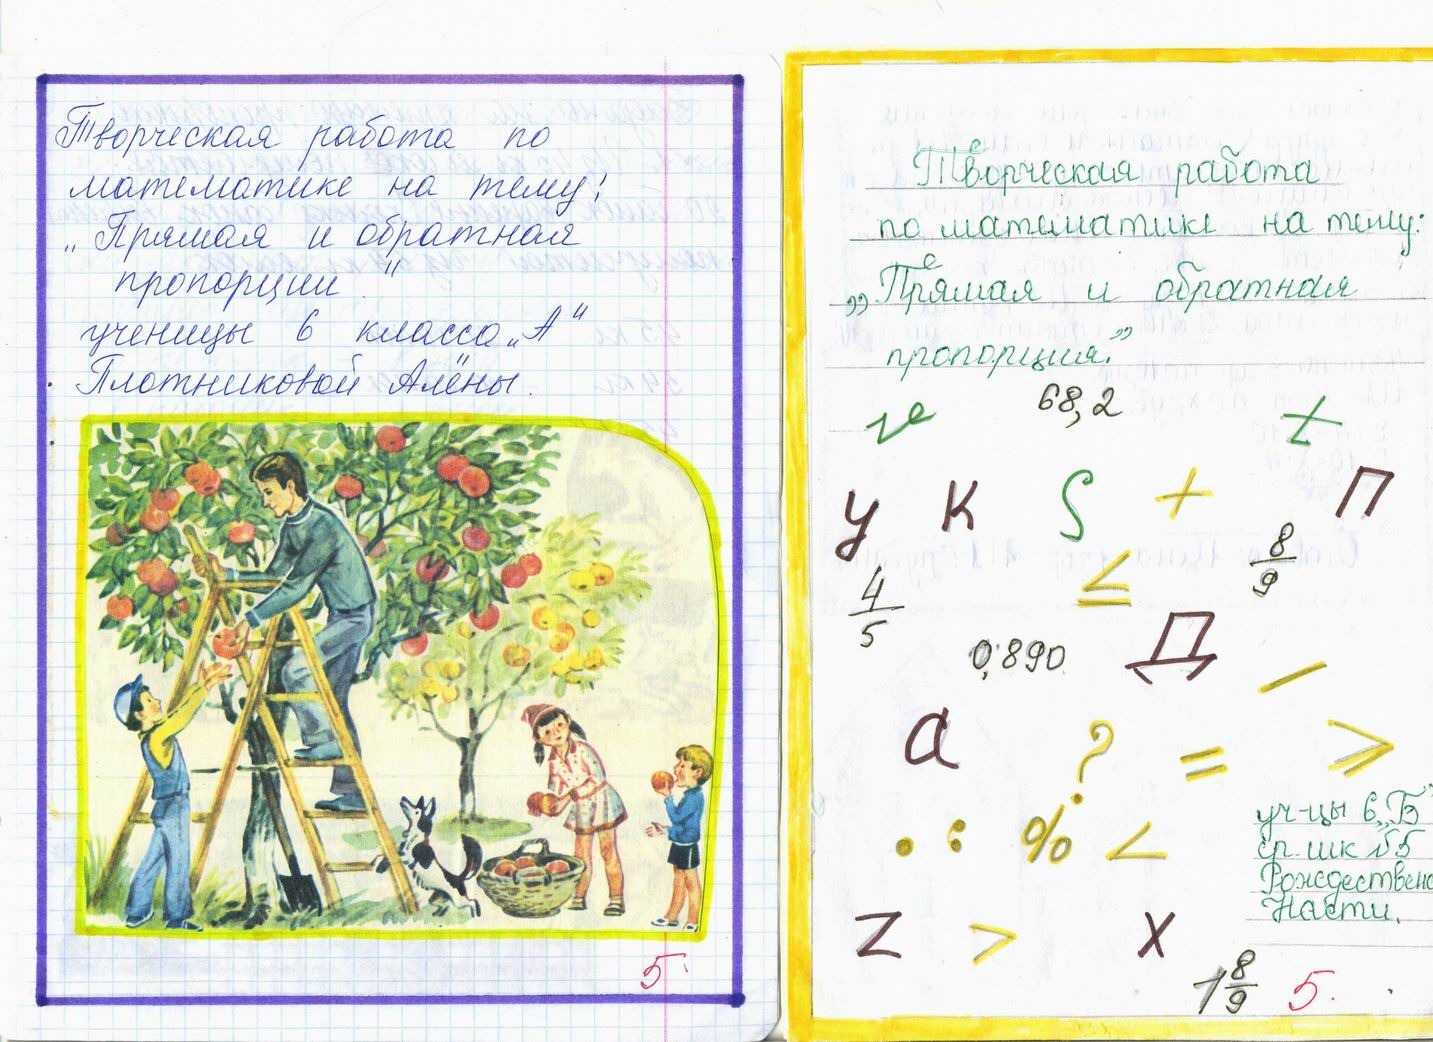 Творческая работа по
математике на тему:
„Прямая и обратная
пропорции."
ученицы 6 класса „А"
Плотниковой Алёны.
5.
Творческая работа
по математике на тему:
„Прямая и обратная
пропорция."
68,2
у к S + П
8/9
≤
4/5
0,890
Д
−
а ? = ≥
. : % <
уч-цы 6 „Б"
ср. шк №5
Насти.
z > x
1 8/9
5.